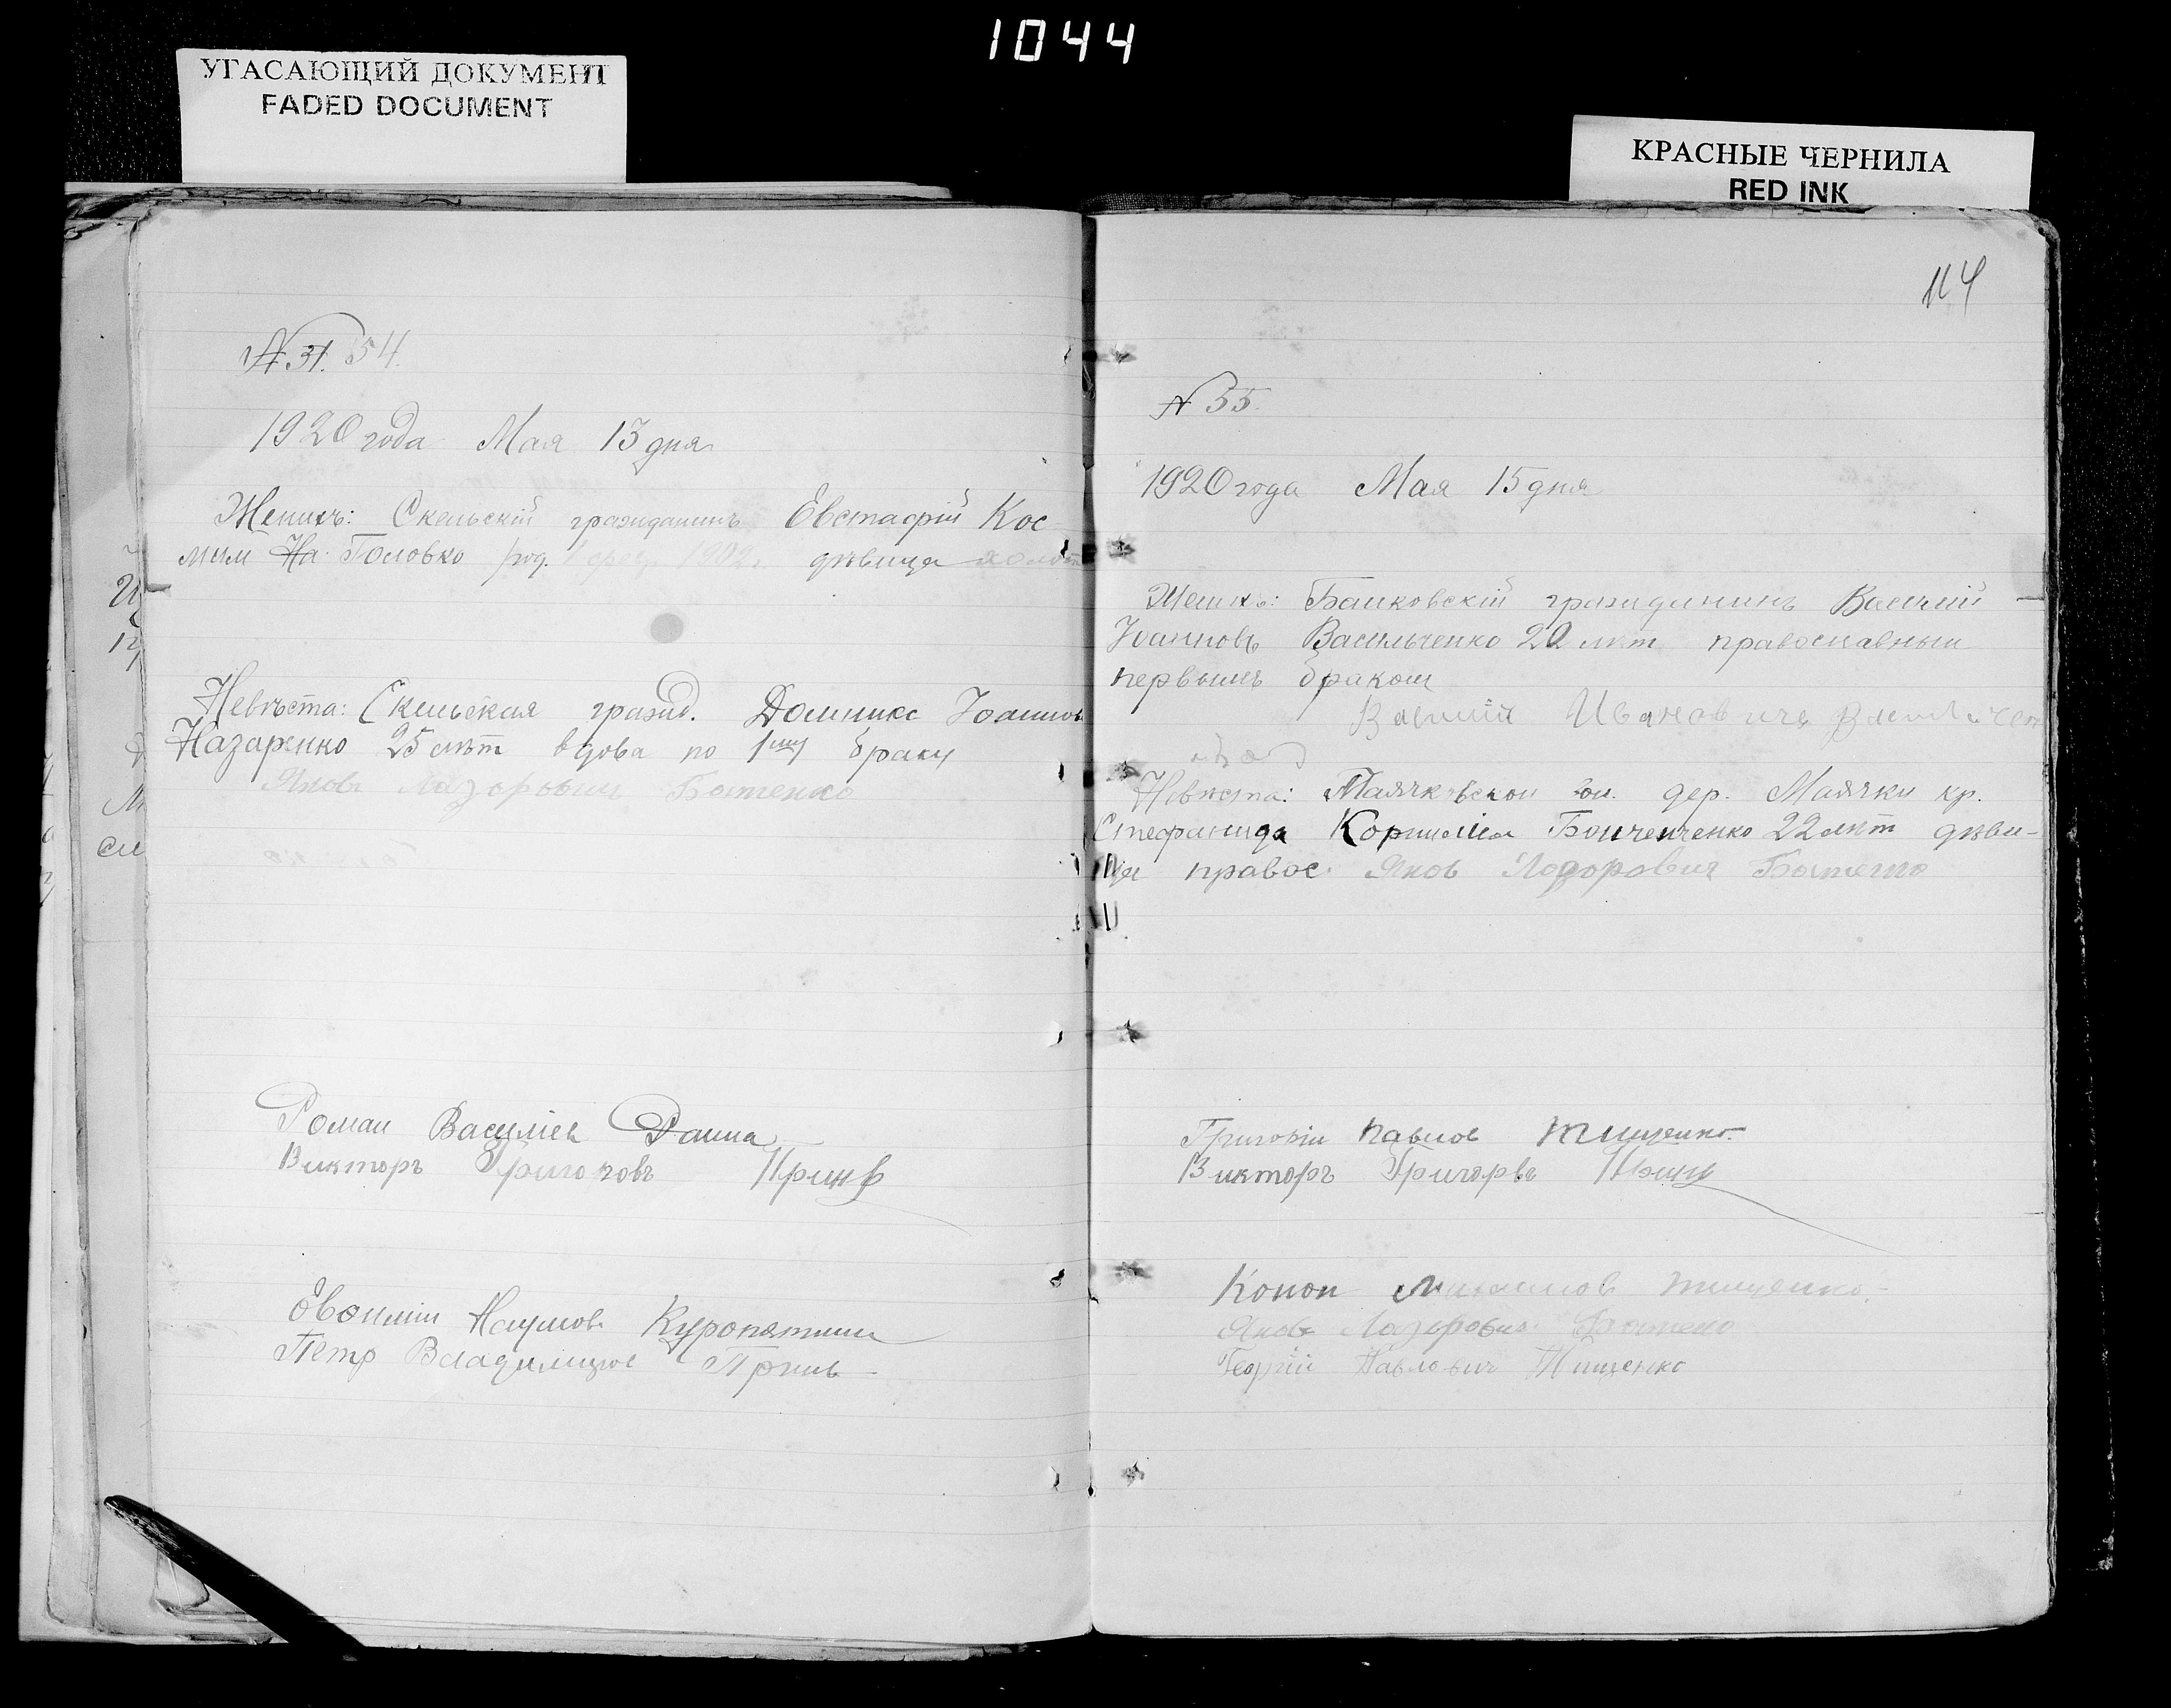 1044
УГАСАЮЩИЙ ДОКУМЕНТ
FADED DOCUMENT
КРАСНЫЕ ЧЕРНИЛА
RED INK
№ 31. 54.
1920 года Мая 13 дня
Женихъ: Скельскій гражданинъ Евстафій Кос
мин На Головко род. 1902 г. дѣвица
Невѣста: Скельская гражд. Домника Іоаннов
Назаренко 25 лѣт вдова по 1му браку
Яковъ Лазорович Ботенко
Роман Васуліев
Викторъ Григоровъ
Наумов Куропятник
Петр Владимиров
114
№ 55.
1920 года Мая 15 дня
Женихъ: Банковскій гражданинъ Василий
Іоанновъ Васильченко 20 лѣт православный
первымъ браком
Василій Ивановичъ
Невѣста: Маячкъвской вол. дер. Маячки кр.
Стефанида Корниліева 22 лѣт дѣви-
ца правос. Яков Лазорович Ботенко
Григорій Павлов Тищенко
Викторъ Григорвъ
Конон Тищенко
Яков Лазорович Ботенко
Георгій Павлович Тищенко